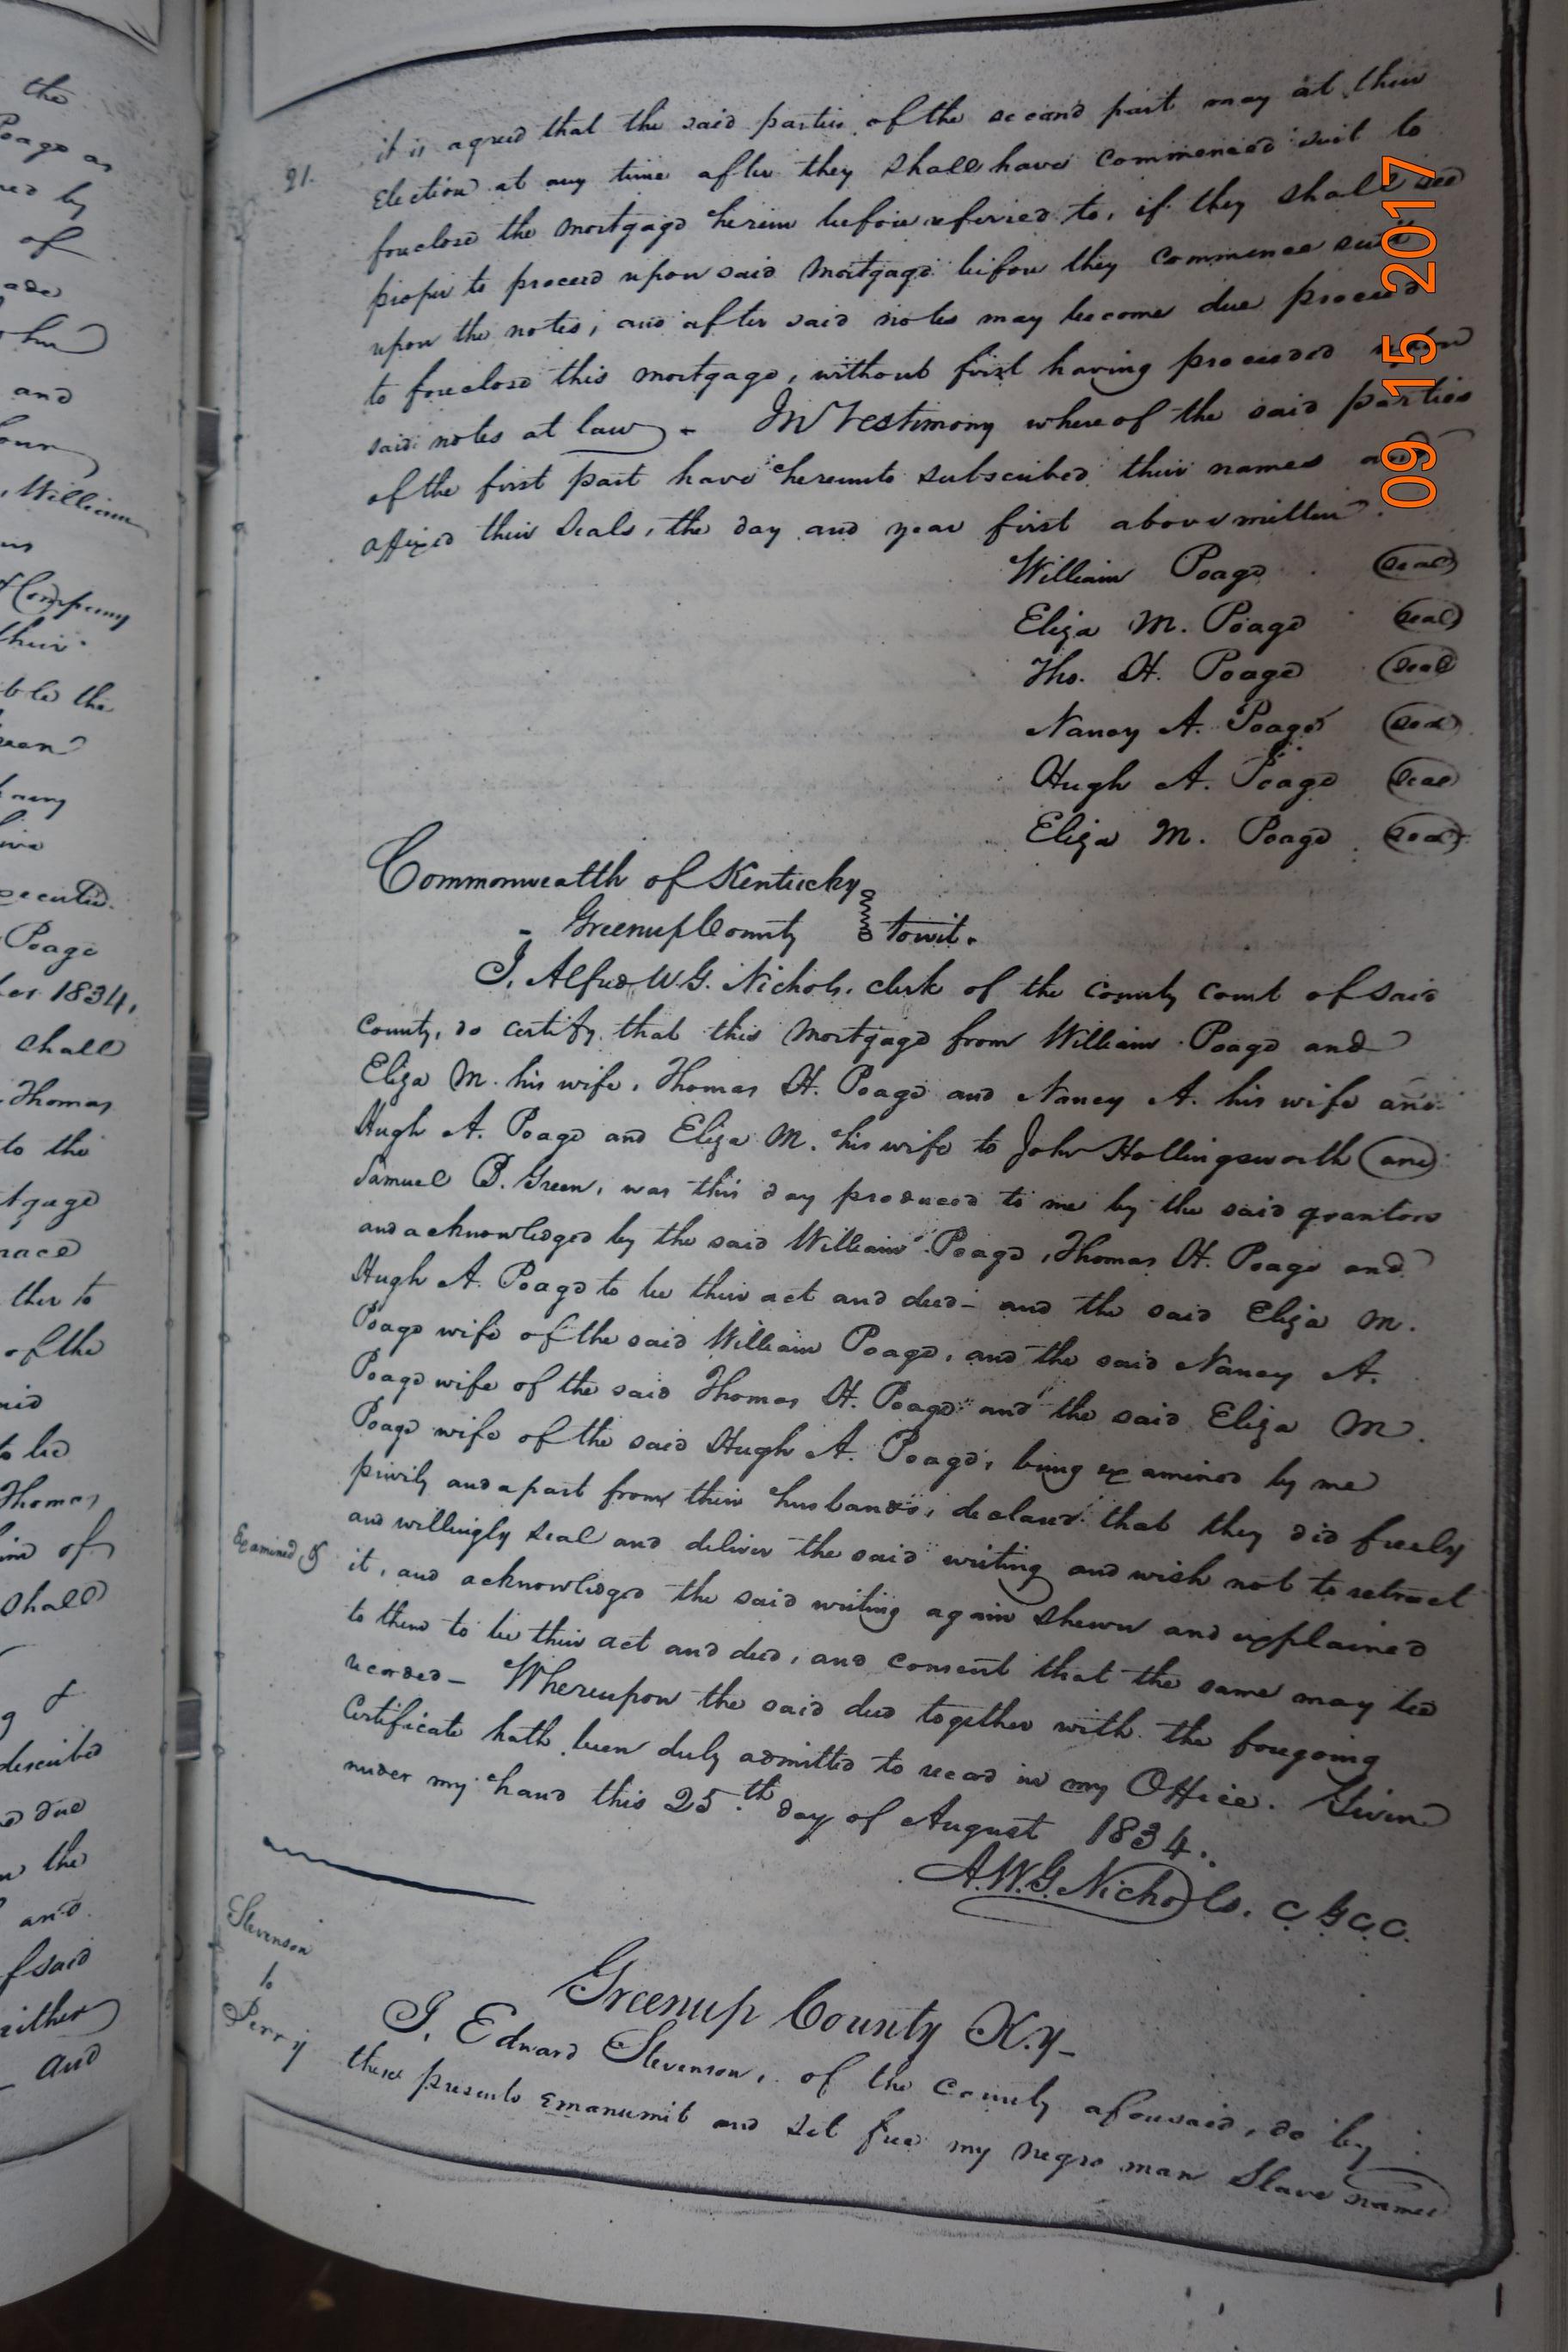 the
Poage as
by
of
and
William
Company
their
ble the
Poage
1834,
shall
Thomas
to the
ther to
of the
to be
Thomas
of
shall
described
due
the
and
said
either
and
21.
it is agreed that the said parties of the second part may at their
Election at any time after they shall have commenced suit to
foreclose the mortgage herein before referred to, if they shall see
proper to proceed upon said mortgage before they commence suit
upon the notes, and after said notes may become due proceed
to foreclose this mortgage, without first having proceeded upon
said notes at law. In Testimony whereof the said parties
of the first part have hereunto subscribed their names and
affixed their Seals, the day and year first above written.
William Poage seal
Eliza M. Poage seal
Tho. H. Poage seal
Nancy A. Poage seal
Hugh A. Poage seal
Eliza M. Poage seal
Commonwealth of Kentucky
Greenup County towit.
I, Alfred W.G. Nichols, clerk of the county court of said
county, do certify that this mortgage from William Poage and
Eliza M. his wife, Thomas H. Poage and Nancy A. his wife and
Hugh A. Poage and Eliza M. his wife to John Hollingsworth and
Samuel B. Green, was this day produced to me by the said grantors
and acknowledged by the said William Poage, Thomas H. Poage and
Hugh A. Poage to be their act and deed - and the said Eliza M.
Poage wife of the said William Poage, and the said Nancy A.
Poage wife of the said Thomas H. Poage and the said Eliza M.
Poage wife of the said Hugh A. Poage, being examined by me
privily and apart from their husbands, declared that they did freely
and willingly seal and deliver the said writing and wish not to retract
Examined &
it, and acknowledged the said writing again shewn and explained
to them to be their act and deed, and consent that the same may be
recorded - Whereupon the said deed together with the foregoing
Certificate hath been duly admitted to record in my Office. Given
under my hand this 25th day of August 1834.
A.W.G. Nichols. C.G.C.C.
Stevenson
to
Perry
Greenup County Ky -
I, Edward Stevenson, of the county aforesaid, do by
these presents emanumit and set free my negro man Slave named
09 15 2017